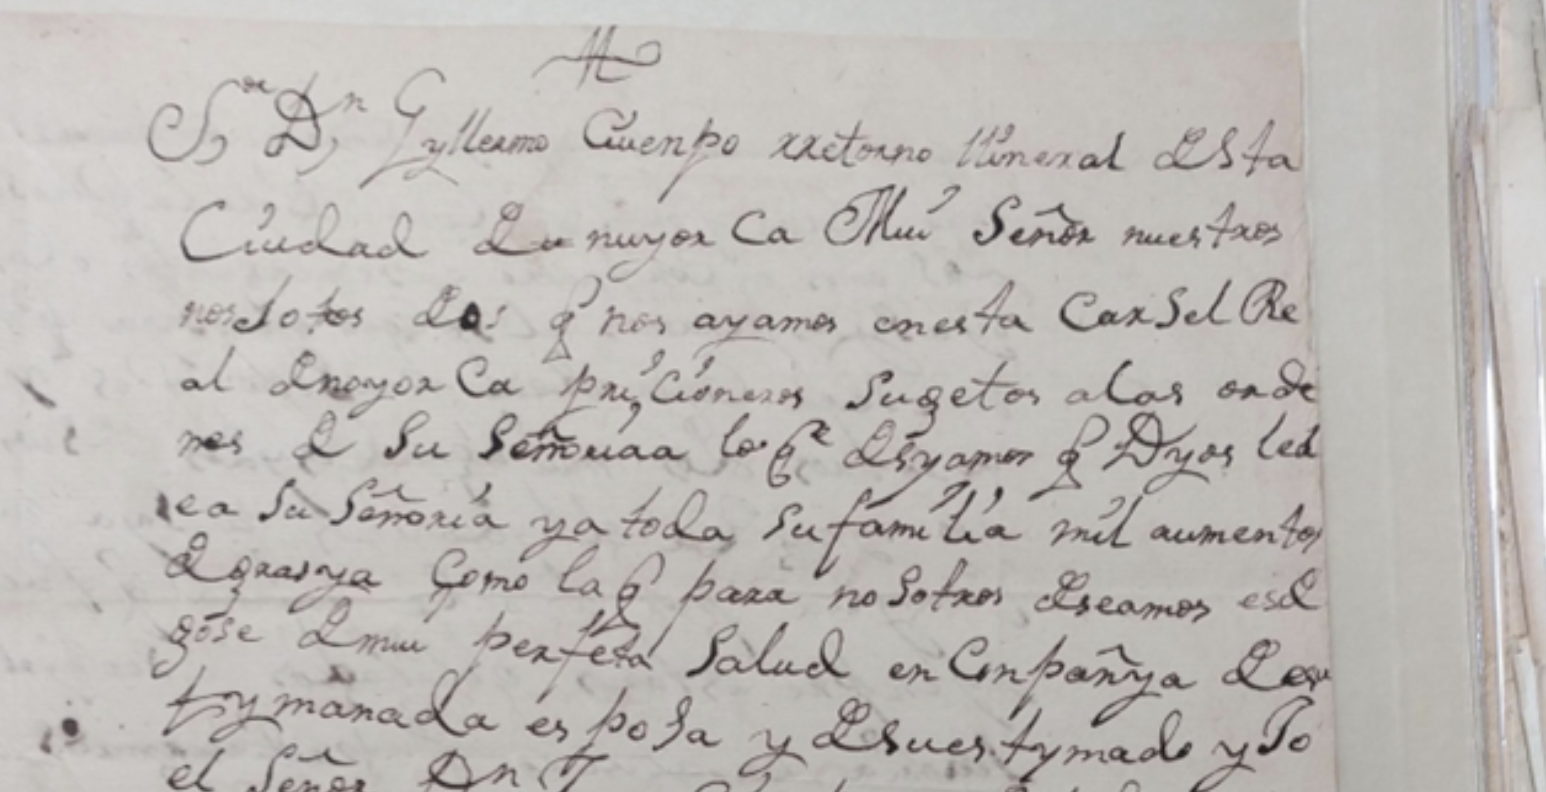 Sor Dn Gyllermo Cuenpo rretorno llineral desta
Ciudad de mayor Ca Muy Señor nuestros
nossotos dos q nos ayamos enesta Carsel Re
al demayor Ca pricioneros sugetos alas orde
nes de su Señoria lo qe desyamos q Dyos led
ea su Señoria ya toda su familia mil aumentos
degrasya Como la q para nosotros deseamos esde
gose demui perfeta salud en Conpañya de
tymanada esposa y desuestymado yJo
el Señor Dn